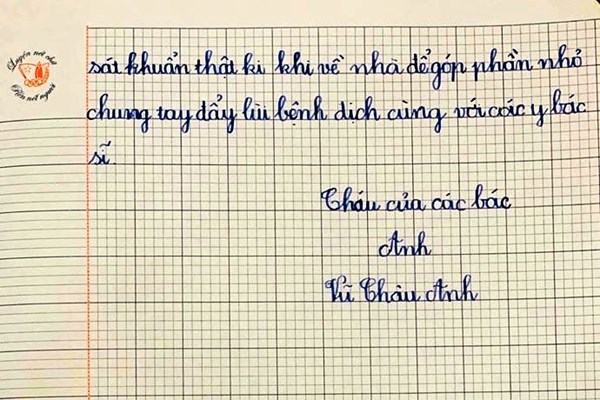 Luyện nét chữ
Rèn nết người
sát khuẩn thật kĩ khi về nhà để góp phần nhỏ
chung tay đẩy lùi bệnh dịch cùng với các y bác
sĩ.
Cháu của các bác
Anh
Vũ Châu Anh